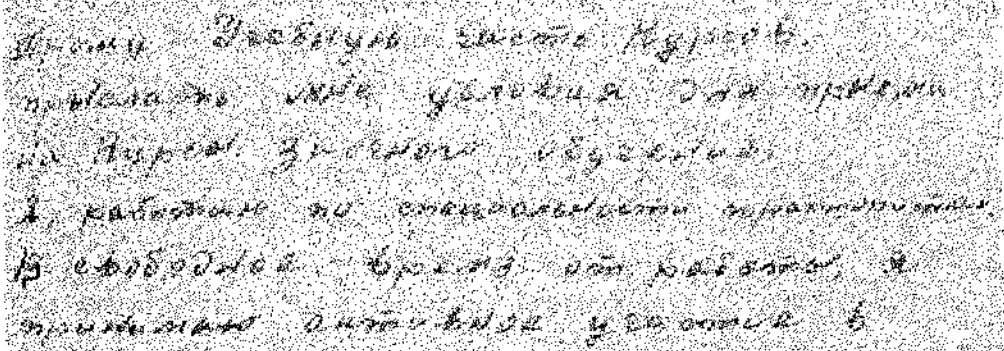 Прошу Учебную часть Курсов.
прислать мне условия для приёма
на Курсы Заочного обучения.
Я, работаю по специальности
В свободное время от работы, я
принимаю активное участие в